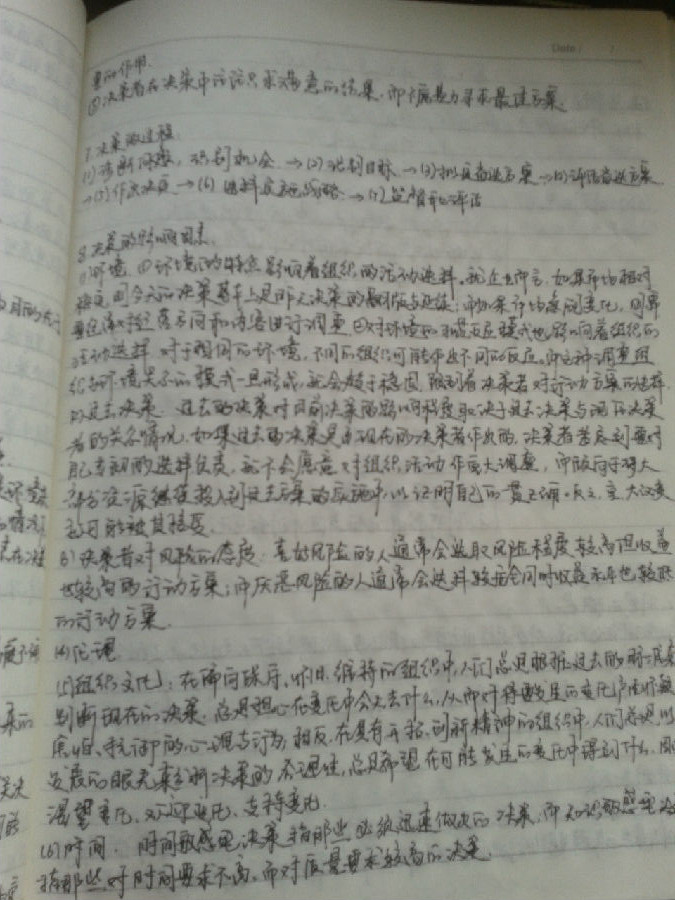 Date / /
要的作用.
⑤决策者在决策中往往只求满意的结果,而不愿费力寻求最佳方案.
7.决策的过程.
(1)诊断问题,识别机会→(2)识别目标→(3)拟定备选方案→(4)评估备选方案
→(5)作出决定→(6)选择实施战略→(7)监督和评估
8.决策的影响因素.
(1)环境.①环境的特点影响着组织的活动选择.就企业而言,如果市场相对
稳定,则今天的决策基本上是昨天决策的翻版与延续;而如果市场急剧变化,则需
要经常对经营方向和内容进行调整.②对环境的习惯反应模式也影响着组织的
活动选择.对于相同的环境,不同的组织可能作出不同的反应.而这种调整组
织与环境关系的模式一旦形成,就会趋于稳固,限制着决策者对行动方案的选择.
(2)过去决策.过去的决策对目前决策的影响程度取决于过去决策与现任决策
者的关系情况,如果过去的决策是由现在的决策者作出的,决策者考虑到要对
自己当初的选择负责,就不会愿意对组织活动作重大调整,而倾向于将大
部分资源继续投入到过去方案的实施中,以证明自己的一贯正确.反之,重大改变
可能被其接受.
(3)决策者对风险的态度.喜好风险的人通常会选取风险程度较高但收益
也较高的行动方案;而厌恶风险的人通常会选择较安全同时收益水平也较低
的行动方案.
(4)伦理
(5)组织文化:在偏向保守、怀旧、维持的组织中,人们总是根据过去的标准来
判断现在的决策,总是担心在变化中会失去什么,从而对将要发生的变化产生怀疑、
害怕、抗御的心理与行为;相反,在具有开拓、创新精神的组织中,人们总是以
发展的眼光来分析决策的合理性,总是希望在可能发生的变化中得到什么,因此
渴望变化、欢迎变化、支持变化.
(6)时间.时间敏感型决策指那些必须迅速做出的决策,而知识敏感型决
指那些对时间要求不高,而对质量要求较高的决策.